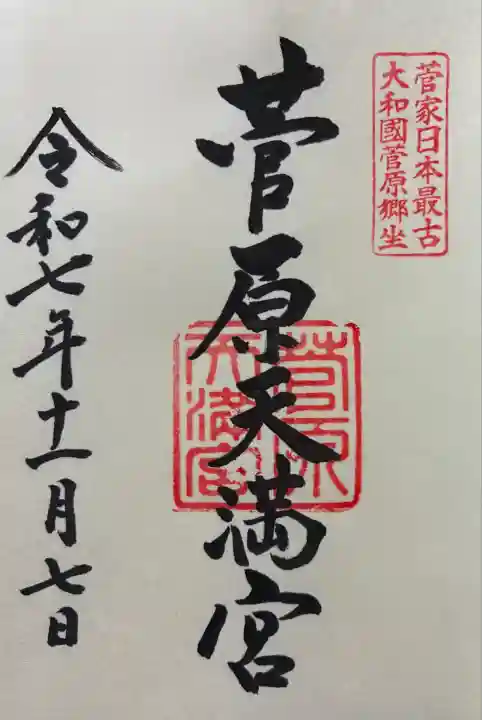 菅家日本最古
大和國菅原郷坐
菅原天満宮
菅原
天満宮
令和七年十一月七日